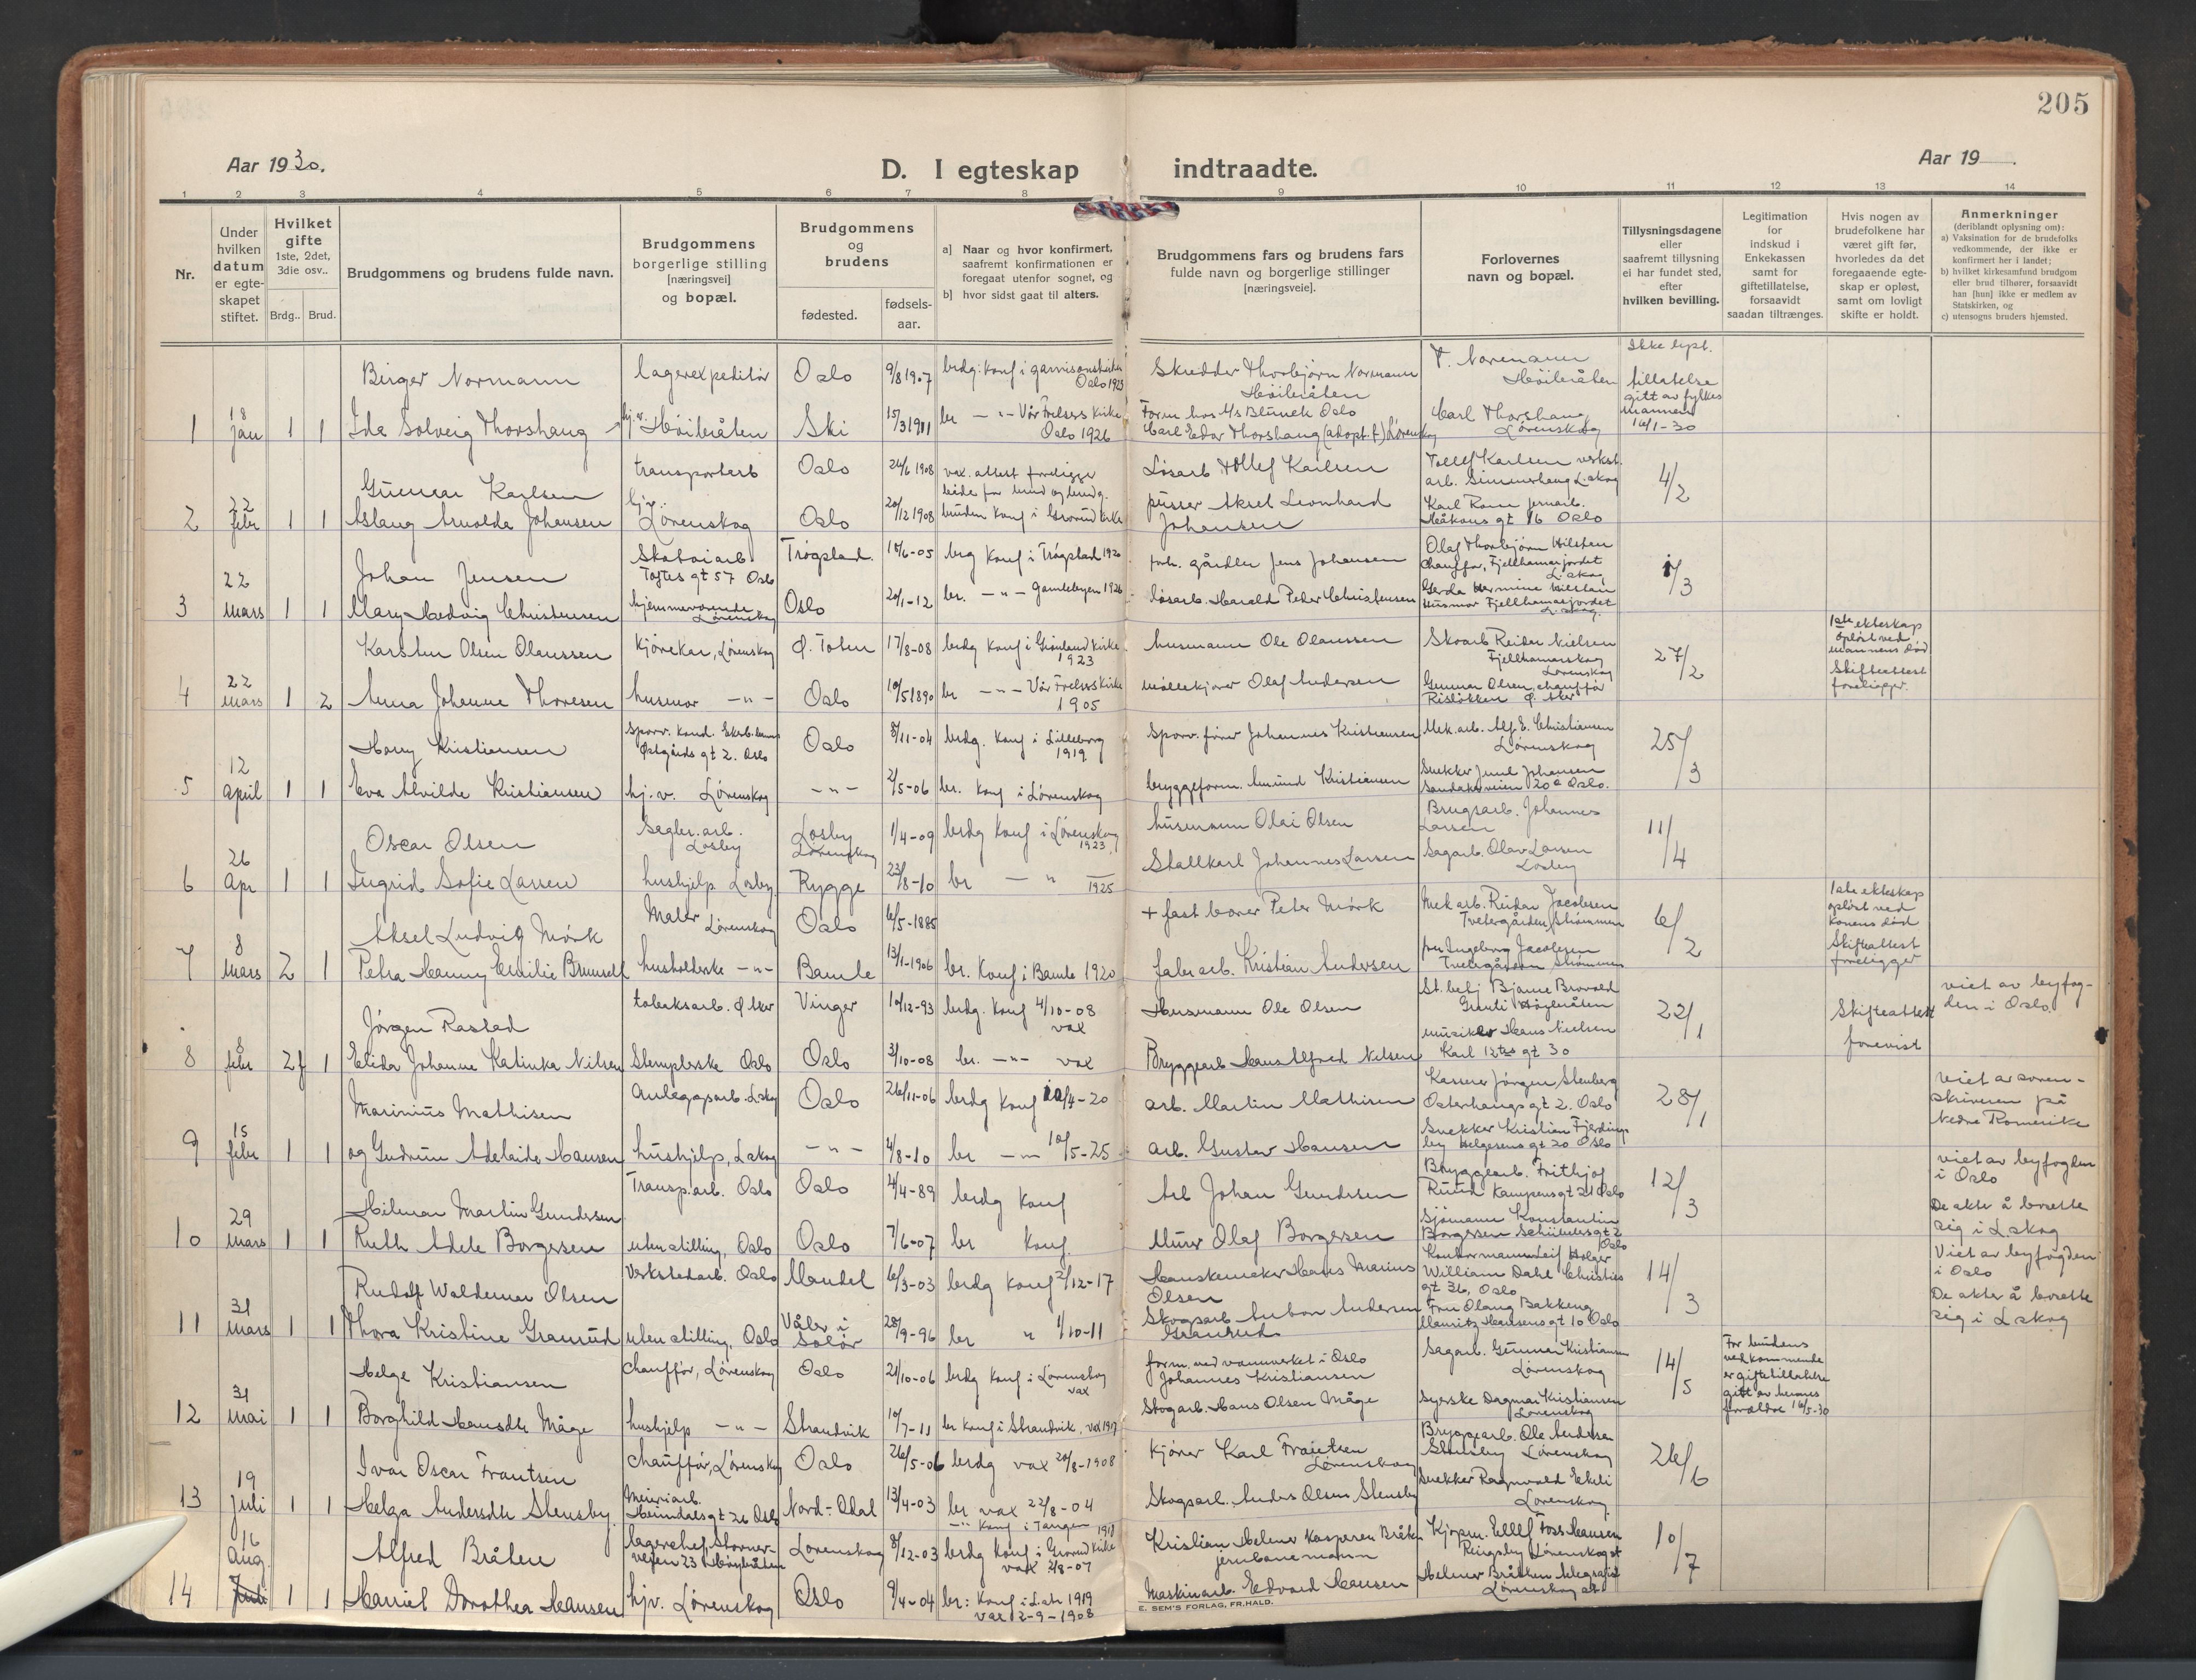 205
Aar 1930.
D. I egteskap indtraadte.
Aar 19
1 2 3 4 5 6 7 8 9 10 11 12 13 14
Nr.
Under hvilken datum er egteskapet stiftet.
Hvilket gifte 1ste, 2det, 3die osv..
Brdg.. Brud.
Brudgommens og brudens fulde navn.
Brudgommens borgerlige stilling [næringsvei] og bopæl.
Brudgommens og brudens
fødested.
fødselsaar.
a) Naar og hvor konfirmert, saafremt konfirmationen er foregaat utenfor sognet, og
b) hvor sidst gaat til alters.
Brudgommens fars og brudens fars fulde navn og borgerlige stillinger [næringsveie].
Forlovernes navn og bopæl.
Tillysningsdagene eller saafremt tillysning ei har fundet sted, efter hvilken bevilling.
Legitimation for indskud i Enkekassen samt for giftetillatelse, forsaavidt saadan tiltrænges.
Hvis nogen av brudefolkene har været gift før, hvorledes da det foregaaende egteskap er opløst, samt om lovligt skifte er holdt.
Anmerkninger
(deriblandt oplysning om):
a) Vaksination for de brudefolks vedkommende, der ikke er konfirmert her i landet;
b) hvilket kirkesamfund brudgom eller brud tilhører, forsaavidt han [hun] ikke er medlem av Statskirken, og
c) utensogns bruders hjemsted.
Birger Normann lagerexpeditør Oslo 9/8 1907 brdg: konf i garnisonskirken Oslo 1923 Skredder Thorbjørn Normann Høibråten T. Normann Høibråten Ikke lyst. tillatelse gitt av fylkesmannen 16/1-30
1 18 Jan 1 1 Ida Solveig Thorshaug hj.v. Høibråten Ski 15/3 1911 br — " — Vår Frelsers kirke Oslo 1926 Form hos A/s Blunck Oslo Carl Edor Thorshaug (adopt.f.) Lørenskog Carl Thorshaug Lørenskog
Gunnar Karlsen transportarb Oslo 24/6 1908 vax. attest foreligger både for brud og brudg. Løsarb Tollef Karlsen Tollef Karlsen verkst. arb. L.skog 4/2
2 22 febr 1 1 Aslaug Arnolda Johansen hjv. Lørenskog Oslo 20/12 1908 bruden konf i Grorud kirke pusser Aksel Leonhard Johansen Karl Roen jernarb. Håkons gt 16 Oslo
Johan Jensen Skotøiarb Toftes gt 57 Oslo Trøgstad. 18/6-05 brg konf i Trøgstad 1920 forh. gårdbr Jens Johansen Olaf Thorbjørn Hilstan Chauffør, Fjellhamarjordet L.skog 1/3
3 22 mars 1 1 Mary Hedvig Christensen hjemmeværende Lørenskog Oslo 20/1-12 br. — " — Gamlebyen 1926 løsarb. Harald Peder Christensen Gerda Hermine Hilstan Husmor Fjellhamarjordet L.skog.
Karsten Olsen Olaussen Kjørekar, Lørenskog Ø. Toten 17/8-08 brdg konf i Grønland kirke 1923 husmann Ole Olaussen Skoarb Reidar Nielsen Fjellhamarskog Lørenskog 27/2 1ste ekteskap opløst ved mannens død Skifteattest foreligger.
4 22 mars 1 2 Anna Johanne Thoresen husmor — " — Oslo 10/5 1890 br — " — Vår Frelsers kirke 1905 møllekjører Olaf Andersen Gunnar Olsen, chauffør Risløkken Ø. Aker
Harry Kristiansen sporv. kond. Østgårds gt 2. Oslo Oslo 8/11-04 brdg. konf i Lilleborg 1919 Sporv. fører Johannes Kristiansen Mek.arb. Alf E. Christiansen Lørenskog 25/3
5 12 April 1 1 Eva Alvilde Kristiansen hj.v. Lørenskog — " — 2/5-06 br. konf i Lørenskog bryggeform. Amund Kristiansen Snekker Juul Johansen Sandakerveien 20a Oslo.
Oscar Olsen Sagbr. arb. Losby Losby Lørenskog 1/4-09 brdg konf i Lørenskog 1923 husmann Olai Olsen Brugsarb. Johannes Larsen 11/4
6 26 Apr 1 1 Ingrid Sofie Larsen hushjelp Losby Rygge 23/8-10 br — " — 1925 Stallkarl Johannes Larsen Sagarb. Olav Larsen Losby
Aksel Ludvig Mørk Maler Lørenskog Oslo 6/5-1885 + fast borer Peter Mørk Mek arb. Reidar Jacobsen Tvetergården, Strømmen 6/2 1ste ekteskap opløst ved konens død Skifteattest foreligger
7 8 Mars 2 1 Petra Hanny Emilie husholderske — " — Bamle 13/1-1906 br. konf i Bamle 1920 fabr arb. Kristian Andersen fru Ingeborg Jacobsen Tvetergården Strømmen
Jørgen Rastad tobaksarb. Ø Aker Vinger 10/12-93 brdg. konf 4/10-08 vax Husmann Ole Olsen St. betj Bjarne Brovold Høybråten 22/1 Skifteattest forevist viet av byfogden i Oslo.
8 8 febr 2f 1 Elida Johanne Katinka Nilsen Stemplerske Oslo Oslo 3/10-08 br. — " — vax Bryggearb Hans Alfred Nilsen musiker Hans Nielsen Karl 12tes gt 30
Marinius Mathisen Anlegsarb. L.skog Oslo 26/11-06 brdg konf 10/4-20 arb. Martin Mathisen Kasserer Jørgen Stenberg Osterhaugs gt 2. Oslo 28/1 Viet av sorenskriveren på Nedre Romerike
9 15 febr 1 1 og Gudrun Adelaide Hansen hushjelp, L.skog — " — 4/8-10 br — " — 10/5-25 arb. Gustav Hansen Snekker Kristian Fjerdingby Helgesens gt 20 Oslo
Hilmar Martin Gundersen Transp.arb. Oslo Oslo 4/4-89 brdg konf Arb Johan Gundersen Bryggearb. Frithjof Ruud Kampens gt 21 Oslo 12/3 viet av byfogden i Oslo
10 29 Mars 1 1 Ruth Adele Borgersen uten stilling, Oslo Oslo 7/6-07 br konf. Murer Olaf Borgersen Sjømann Konstantin Borgersen gt 2 Oslo De akter å bosette sig i L.skog
Rudolf Waldemar Olsen Verkstedarb. Oslo Mandal 6/3-03 brdg konf 2/12-17 Hanskemaker Hans Marius Olsen Kontormann Leif Holger William Dahl Christies gt 36, Oslo 14/3 Viet av byfogden i Oslo
11 31 Mars 1 1 Thora Kristine Granrud uten stilling, Oslo Våler i Solør 28/9-96 br " 1/10-11 Skogsarb Anton Andersen Granrud Fru Olaug Bakkeng Mauritz Hansens gt 10 Oslo De akter å bosette sig i L.skog
Helge Kristiansen Chauffør, Lørenskog Oslo 21/10-06 brdg konf i Lørenskog vax form. ved vannverket i Oslo Johannes Kristiansen Sagarb. Gunnar Kristiansen Lørenskog 14/5 For brudens vedkommende er giftetillatelse gitt av hennes foreldre 16/5-30
12 31 mai 1 1 Borghild Hansdtr Måge hushjelp — " — Strandvik 10/7-11 br konf i Strandvik, vax 1917 Skogarb. Hans Olsen Måge Syerske Dagmar Kristiansen Lørenskog
Ivar Oscar Frantsen Chauffør, Lørenskog Oslo 26/5-06 brdg vax 20/8-1908 kjører Karl Frantsen Lørenskog Bryggearb. Ole Andersen Stensby Lørenskog 26/6
13 19 Juli 1 1 Helga Andersdtr Stensby. Meieriarb. Heimdals gt 26 Oslo Nord-Odal 13/4-03 br vax 22/8-04 — " konf i Tangen 1918 Skogsarb. Anders Olsen Stensby Snekker Ragnvald Lørenskog
Alfred Bråten lagerchef, Stovnerveien 23 Høybråten Lørenskog 8/12-03 brdg konf i Grorud kirke vax 2/8-07 Kristian Helmer Kaspersen Bråten jernbanemann Kjøpm. Ellef Foss Hansen Ringsby Lørenskog st 10/7
14 16 Aug. Juli 1 1 Harriet Dorothea Hansen hjv. Lørenskog Oslo 9/4-04 br: konf i L.skog 1919 vax 2-9-1908 Maskinarb. Edvard Hansen Helmer Bråthen telegrafist Lørenskog st
E. SEM'S FORLAG, FR.HALD.